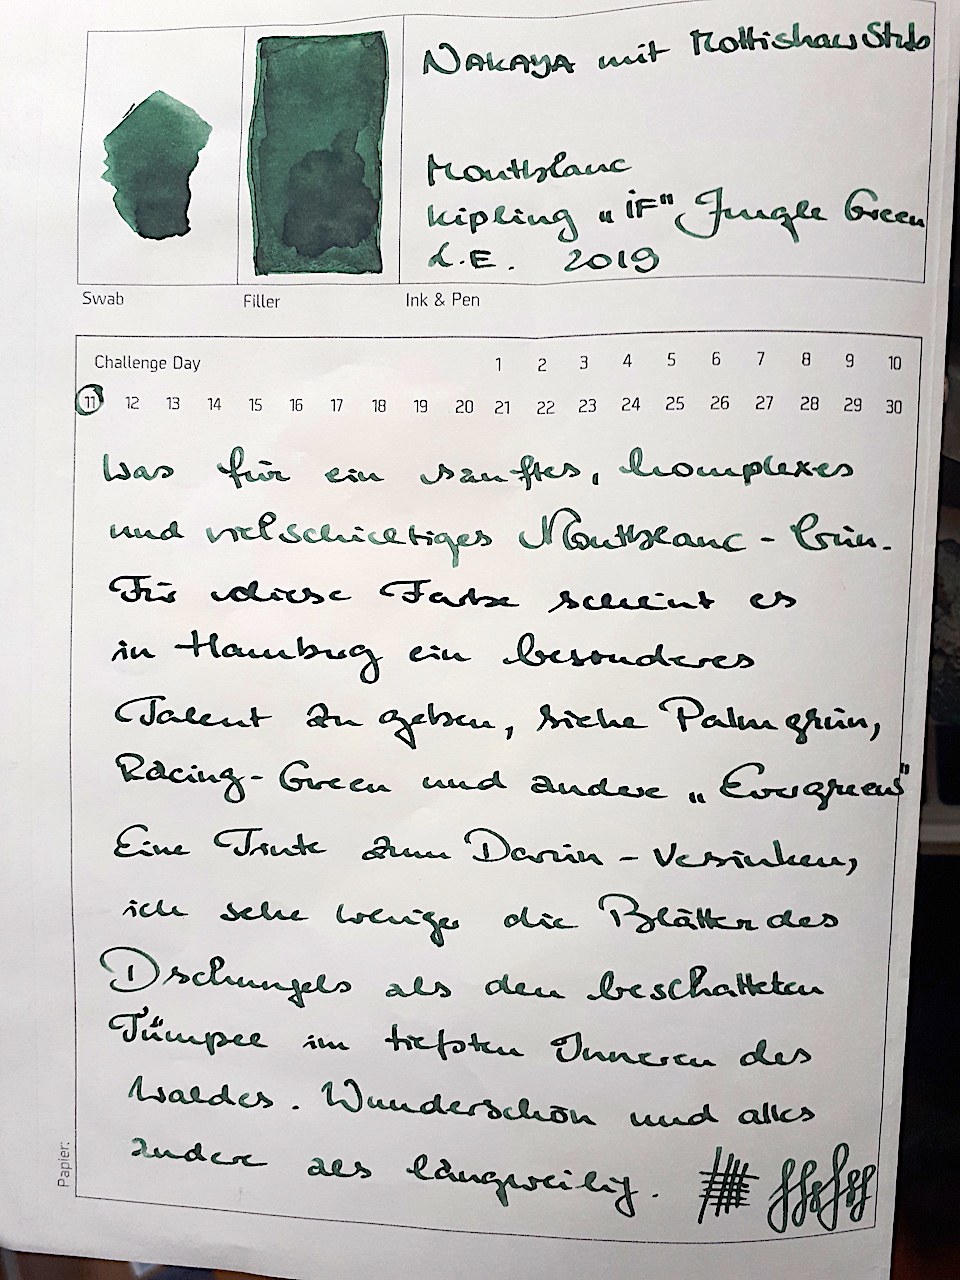 NAKAYA mit Mottishaw Stub
Montblanc
Kipling „IF" Jungle Green
L.E. 2019
Swab Filler Ink & Pen
Challenge Day 1 2 3 4 5 6 7 8 9 10
11 12 13 14 15 16 17 18 19 20 21 22 23 24 25 26 27 28 29 30
Was für ein sanftes, komplexes
und vielschichtiges Montblanc - Grün.
Für diese Farbe scheint es
in Hamburg ein besonderes
Talent zu geben, siehe Palmgrün,
Racing-Green und andere „Evergreens"
Eine Tinte zum Darin - Versinken,
ich sehe weniger die Blätter des
Dschungels als den beschatteten
Tümpel im tiefsten Inneren des
Waldes. Wunderschön und alles
andere als langweilig.
Papier: